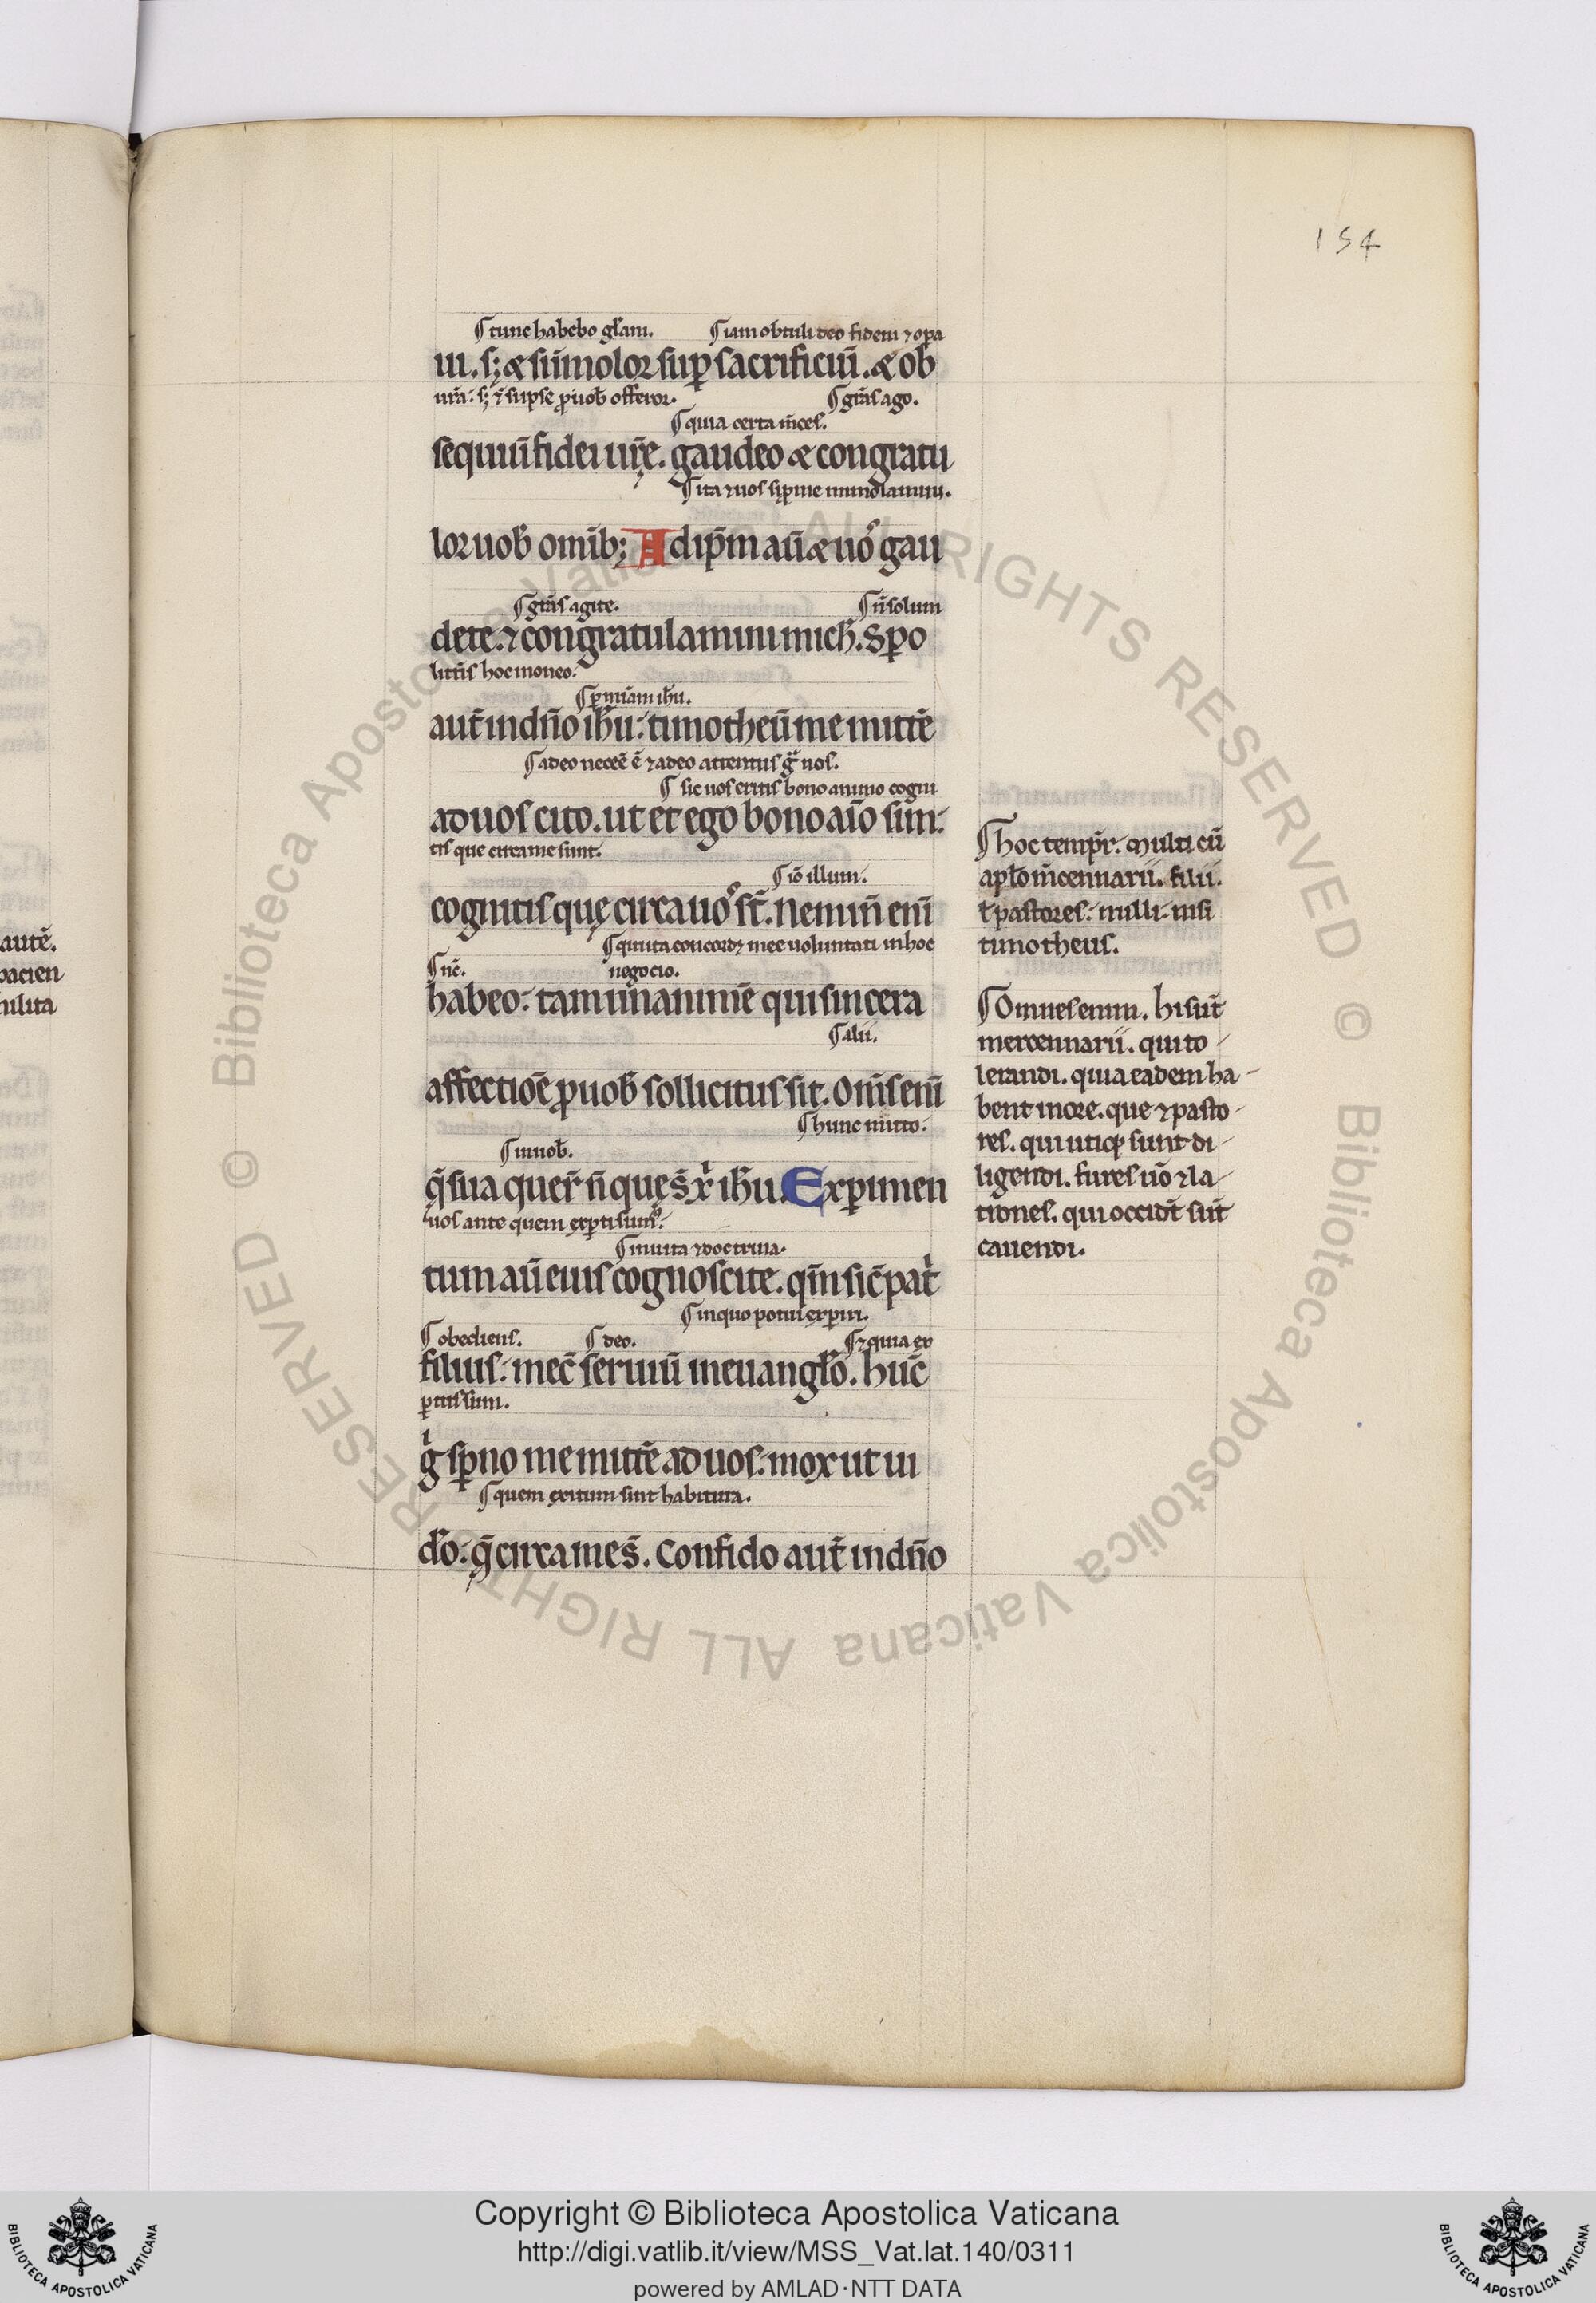 154
¶ tunc habebo gl̅am. ¶ iam obtuli deo fidem ⁊ op̅a
ui. s; æ si īmolor sup̱ sacrificiū. æ ob
ur̅a. s; ⁊ sup̱ se p̱ uob̅ offeror. ¶ gr̅as ago.
¶ quia certa m̅ces.
sequiū fidei ur̅ę. gaudeo æ congratu
¶ ita ⁊ uos sup̱ me immolatum.
lor uob̅ omīb; Ad ip̅m aū æ uo᷒ gau
¶ gr̅as agite. ¶ n̄ solum
dete. ⁊ congratulamini mich̅. Sp̱o
litt̅is hoc moneo.
¶ p̱ mīam ih̅u.
aut̅ in dn̅o ih̅u. timotheū me mitte̅
¶ adeo necee̅ e̅ ⁊ adeo attentus g̅ uos.
¶ sic uos eritis bono animo cogni
ad uos cito. ut et ego bono aīo sim.
tis que circa me sunt.
¶ iō illum.
cognitis quę circa uo᷒ st̅. Nemin̄ enī
¶ qui ita concordꝫ mee uoluntati in hoc
¶ nc̅. negocio.
habeo. tam unanime̅ qui sincera
¶ alii.
affectiōe p̱ uob̅ sollicitus sit. Om̅s enī
¶ hunc mitto.
¶ in uob̅.
q̅ sua quer̅ n̄ quę s̅ xp̅i ih̅u. Experimen
uos ante quem exp̱ti sum᷒.
¶ in uita ⁊ doctrina.
tum aū eius cognoscite. qm̅ sic̅ pat̅
¶ in quo potui exp̱iri.
¶ obediens. ¶ deo. ¶ ⁊ quia ex
filius. mec̅ seruiū in euangl̅o. hūc
p̱tus sum.
g̅ sp̱no me mitte̅ ad uos. mox ut ui
¶ quem exitum sint habitura.
d̅o. q̅ circa me s̅. Confido aut̅ in dn̅o
¶ hoc temp̱r̅. Multi cū
ap̅lo m̅cennarii. filii.
t̅ pastores. nulli. nisi
timotheus.
¶ Omnes enim. hi sūt
mercennarii. qui to-
lerandi. quia eadem ha-
bent in ore. que ⁊ pasto-
res. qui utiqꝫ sunt di-
ligendi. fures uo̅ ⁊ la-
trones. qui occidt̅ sūt
cauendi.
aute̅.
pacien
Copyright © Biblioteca Apostolica Vaticana
http://digi.vatlib.it/view/MSS_Vat.lat.140/0311
powered by AMLAD·NTT DATA
BIBLIOTECA APOSTOLICA VATICANA
BIBLIOTECA APOSTOLICA VATICANA
© Biblioteca Apostolica Vaticana ALL RIGHTS RESERVED © Biblioteca Apostolica Vaticana ALL RIGHTS RESERVED